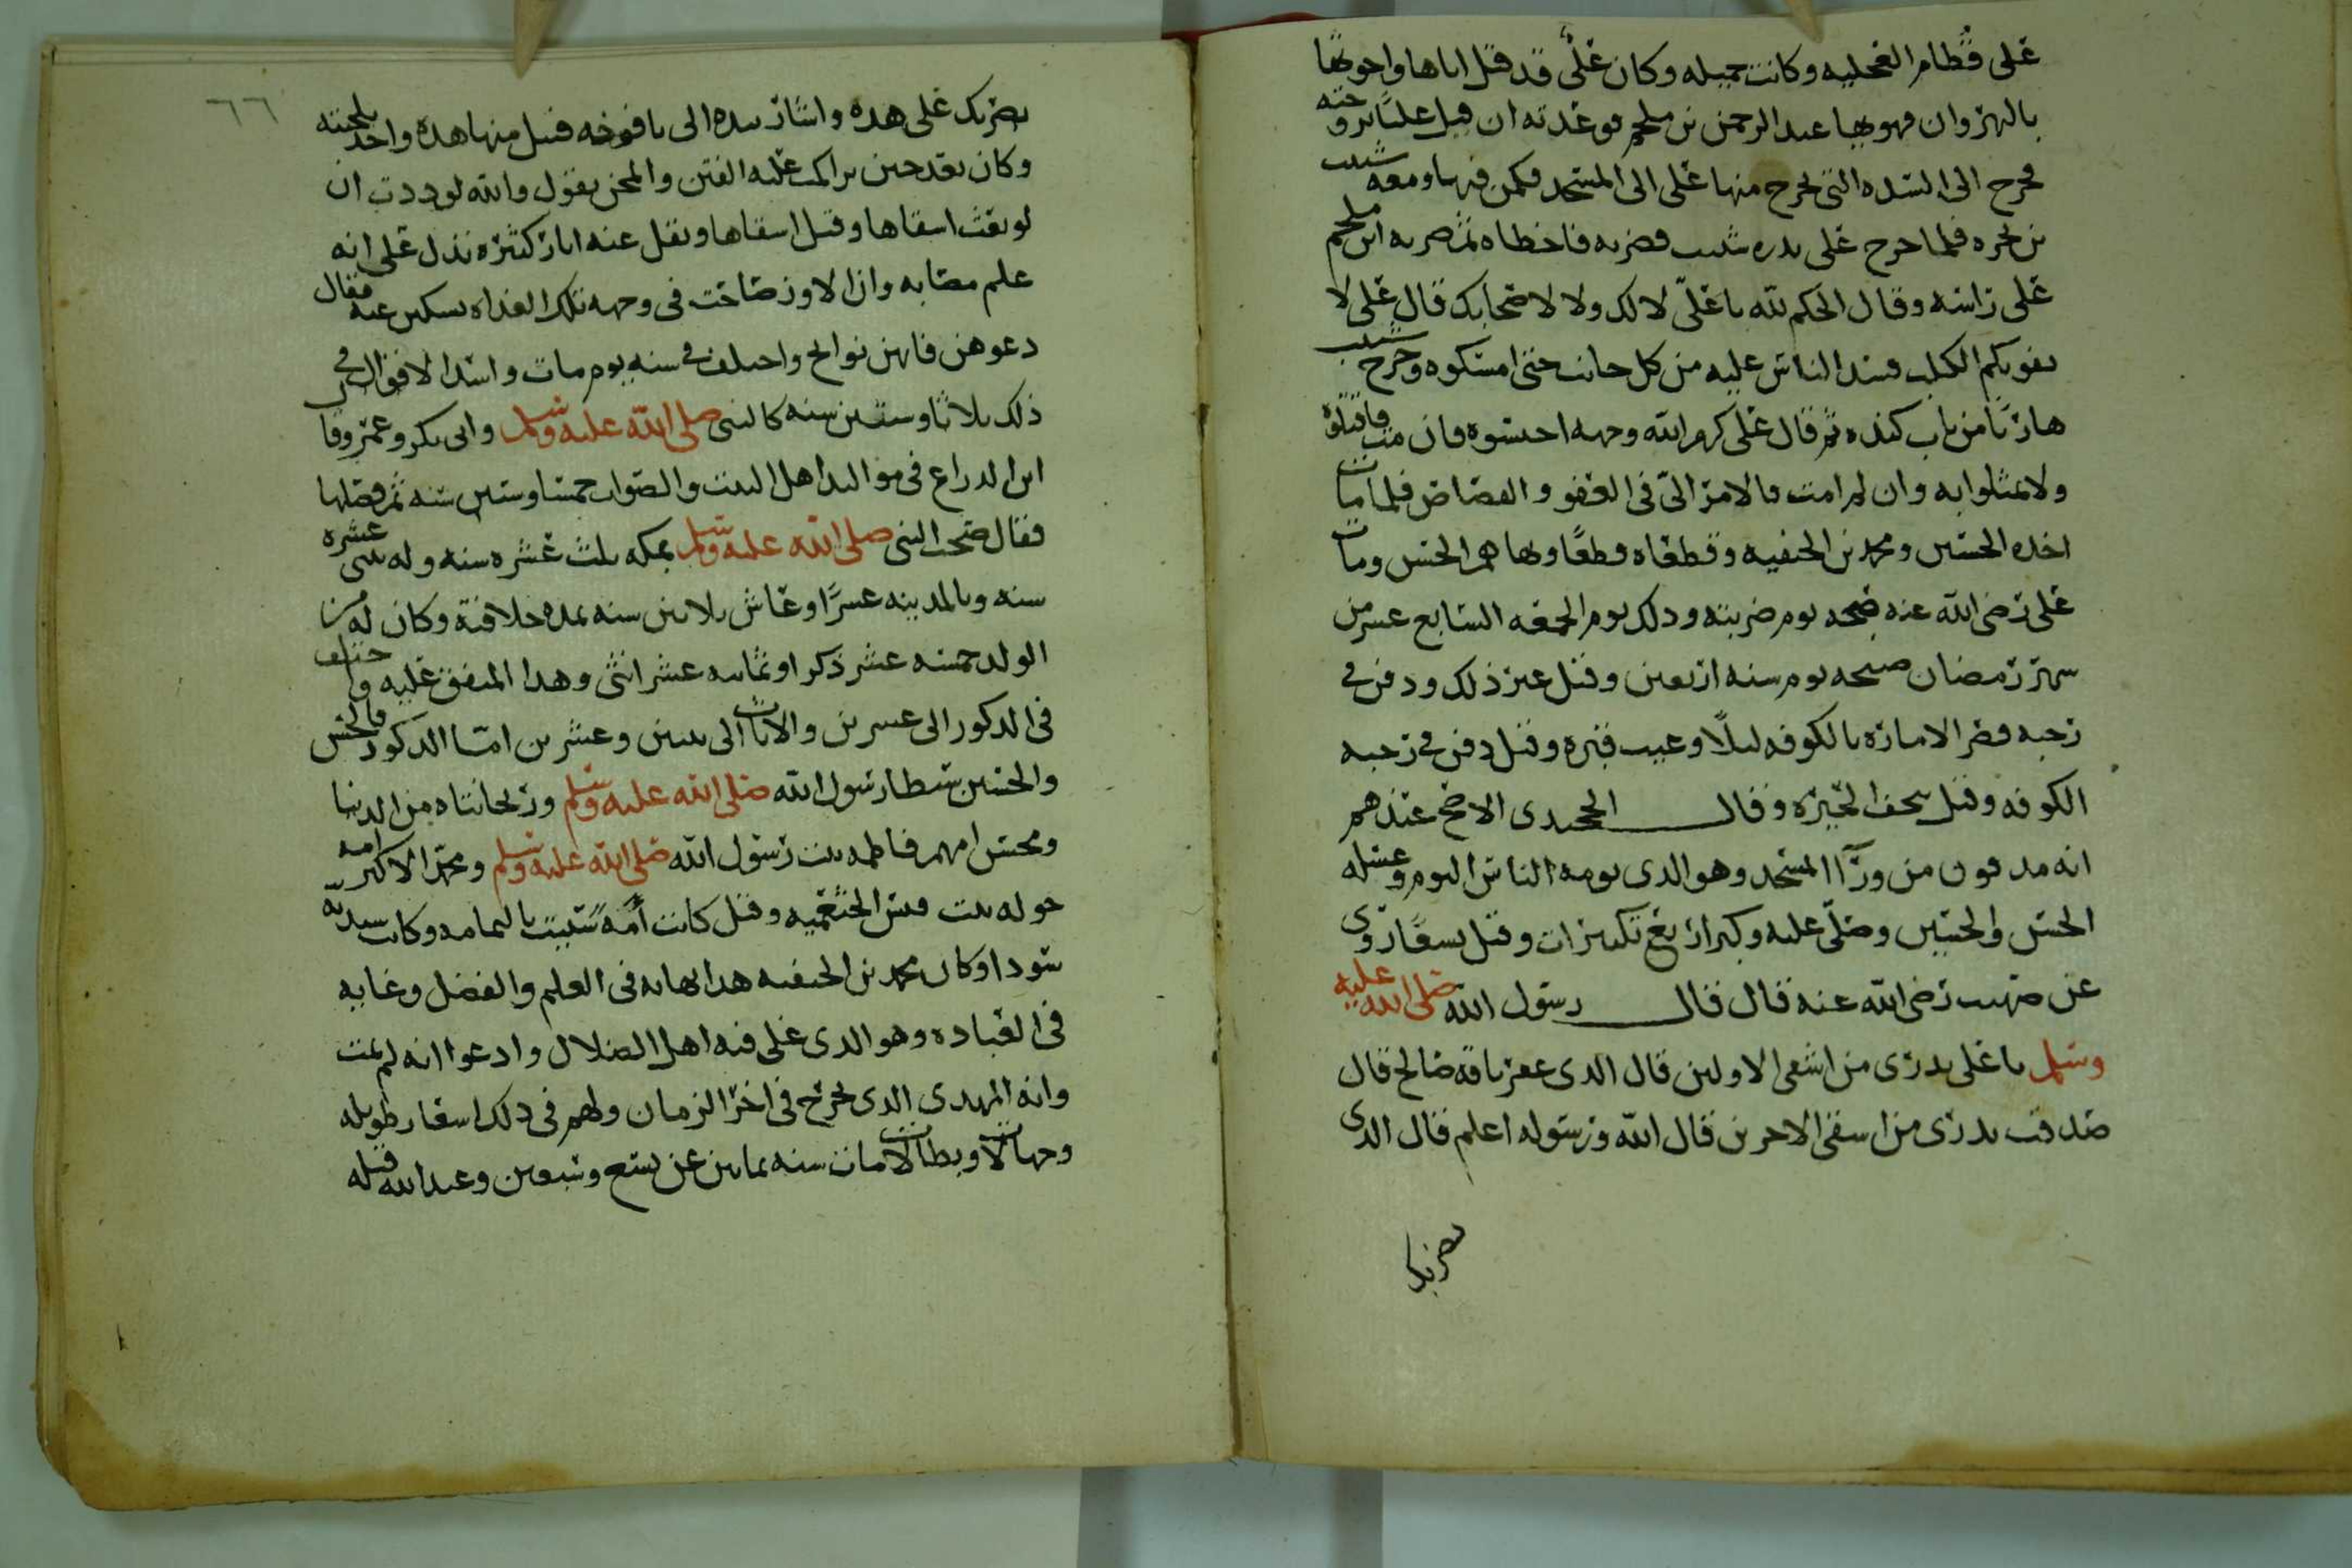 على قطام العجليه وكانت جميله وكان علي قد قتل اباها واخوتها
بالنهروان فهويها عبد الرحمن بن ملجم فوعدته ان قتل عليا تزوجته
فخرج الى السده التي يخرج منها علي الى المسجد فكمن فيها ومعه شبيب
بن بجره فلما خرج علي بدره شبيب فضربه فاخطاه ثم ضربه ابن ملجم
على راسه وقال الحكم لله يا علي لا لك ولا لاصحابك قال علي لا
يفوتكم الكلب فشد الناس عليه من كل جانب حتى امسكوه وخرج شبيب
هاربا من باب كنده ثم قال علي كرم الله وجهه احبسوه فان مت فاقتلوه
ولا تمثلوا به وان لم امت فالامر الي في العفو والقصاص فلما مات
اخذه الحسين ومحمد بن الحنفيه وقطعاه قطعا ونهاهم الحسن ومات
علي رضي الله عنه صبحه يوم ضربته وذلك يوم الجمعه السابع عشر من
شهر رمضان صبيحه يوم سنه اربعين وقيل غير ذلك ودفن في
رحبه قصر الاماره بالكوفه ليلا وغيب قبره وقيل دفن في رحبه
الكوفه وقيل بنجف الحيره وقال الخجندي الاصح عندهم
انه مدفون من ورآ المسجد وهو الذي يومه الناس اليوم وغسله
الحسن والحسين وصلى عليه وكبر اربع تكبيرات وقيل تسعا روي
عن صهيب رضي الله عنه قال قال رسول الله صلى الله عليه
وسلم يا علي تدري من اشقى الاولين قال الذي عقر ناقه صالح قال
صدقت تدري من اشقى الاخرين قال الله ورسوله اعلم قال الذي
يضربك
٦٦
يضربك على هذه واشار بيده الى يافوخه فتبل منها هذه واخذ بلحيته
وكان بعد حين تراكمت عليه الفتن والمحن يقول والله لوددت ان
لو بعث اشقاها وقيل اشقاها ونقل عنه اثار كثيره تدل على انه
علم مصابه وان الاوز صاحت في وجهه تلك الغداه يسكين عنه فقال
دعوهن فانهن نوائح واختلف في سنه يوم مات واشد الاقوال في
ذلك ثلاثا وستين سنه كالنبي صلى الله عليه وسلم وابي بكر وعمر وقال
ابن الدراع في مواليد اهل البيت والصواب خمسا وستين سنه ثم فصلها
فقال صحب النبي صلى الله عليه وسلم بمكه ثلث عشره سنه وله ثنتي عشره
سنه وبالمدينه عشرا وعاش ثلاثين سنه بمده خلافته وكان له من
الولد خمسه عشر ذكرا وثمانيه عشر انثى وهذا المتفق عليه واختلف
في الذكور الى عشرين والاناث الى اثنين وعشرين امنا الذكور فالحسن
والحسين سبطا رسول الله صلى الله عليه وسلم وريحانتاه من الدنيا
ومحسن امهم فاطمه بنت رسول الله صلى الله عليه وسلم ومحمد الاكبر امه
خوله بنت قيس الخثعميه وقيل كانت أمة سبيت باليمامه وكانت سنديه
سودا وكان محمد بن الحنفيه هذا نهايه في العلم والفضل وغايه
في العباده وهو الذي غلى فيه اهل الضلال وادعوا انه لم يمت
وانه المهدي الذي يخرج في اخر الزمان ولهم في ذلك اشعار طويله
وجهالات وبطالات مات سنه ثمانين عن تسع وسبعين وعبد الله قتله